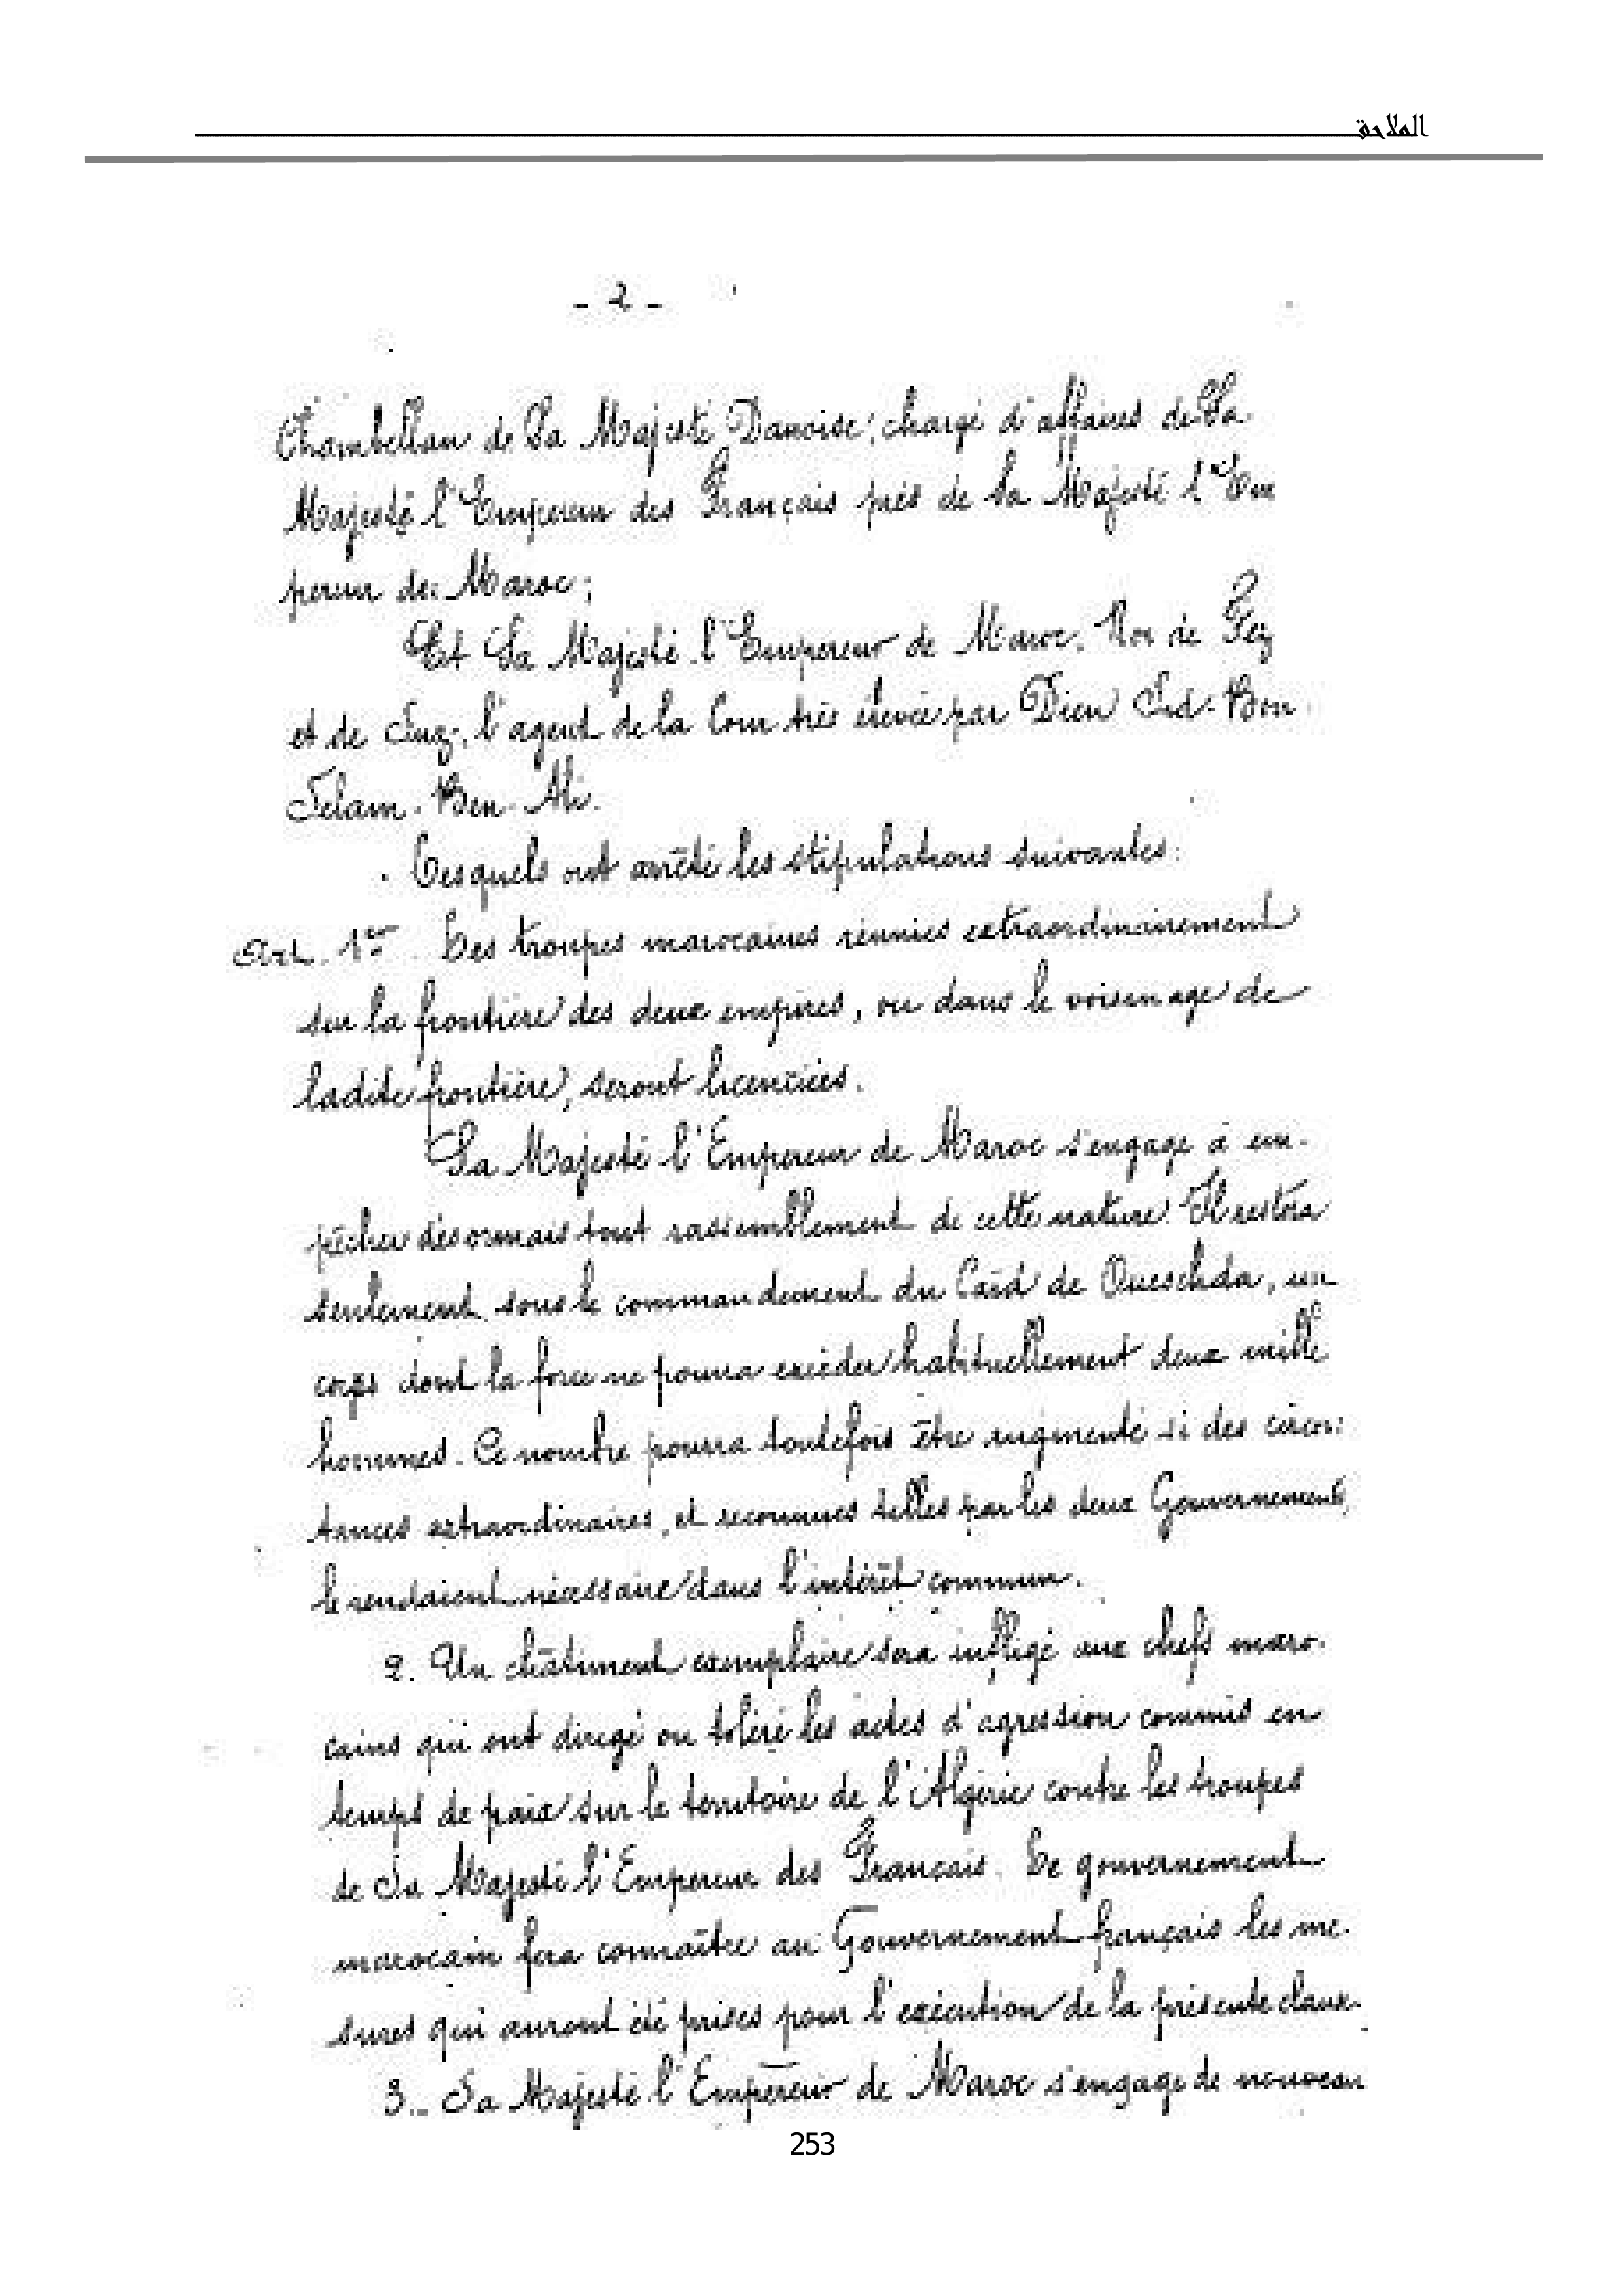 الملاحق
- 2 -
Chambellan de Sa Majesté Danoise, chargé d'affaires de Sa
Majesté l'Empereur des Français près de Sa Majesté l'Em
pereur de Maroc;
Et Sa Majesté l'Empereur de Maroc, Roi de Fez
et de Suz, l'agent de la Cour très élevée par Dieu Sid-Bou
Selam-Ben-Ali.
Lesquels ont arrêté les stipulations suivantes:
Art. 1er. Les troupes marocaines réunies extraordinairement
sur la frontière des deux empires, ou dans le voisinage de
ladite frontière, seront licenciées.
Sa Majesté l'Empereur de Maroc s'engage à em-
pêcher désormais tout rassemblement de cette nature. Il restera
seulement, sous le commandement du Caïd de Oueschda, un
corps dont la force ne pourra excéder habituellement deux mille
hommes. Ce nombre pourra toutefois être augmenté si des circons-
tances extraordinaires, et reconnues telles par les deux Gouvernements,
le rendaient nécessaire dans l'intérêt commun.
2. Un châtiment exemplaire sera infligé aux chefs maro-
cains qui ont dirigé ou toléré les actes d'agression commis en
temps de paix sur le territoire de l'Algérie contre les troupes
de Sa Majesté l'Empereur des Français. Le gouvernement
marocain fera connaître au Gouvernement français les me-
sures qui auront été prises pour l'exécution de la présente clause.
3.- Sa Majesté l'Empereur de Maroc s'engage de nouveau
253